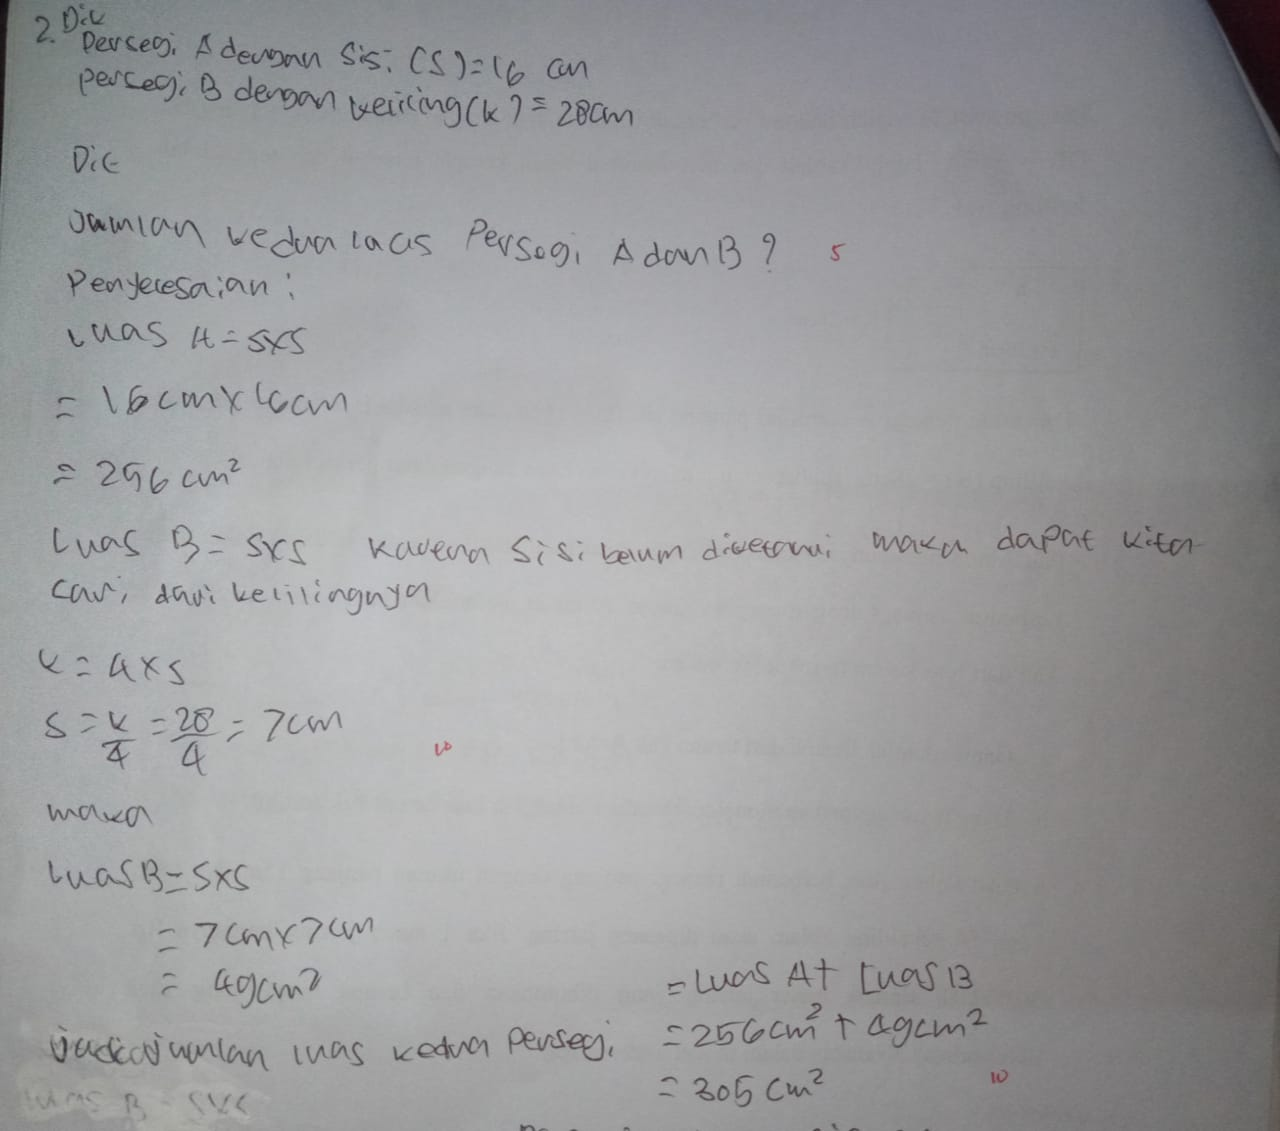 2. Dik
Persegi A dengan sisi (s) = 16 cm
persegi B dengan keliling (k) = 28cm
Dit
Jumlah kedua luas Persegi A dan B ? 5
Penyelesaian :
Luas A = sxs
= 16cm x 16cm
= 256 cm²
Luas B = sxs karena sisi belum diketahui maka dapat kita
cari dari kelilingnya
K = 4 x s
s = k/4 = 28/4 = 7cm
10
maka
Luas B = sxs
= 7cm x 7cm
= 49cm²
Jadi Jumlah luas kedua Persegi
= Luas A + Luas B
= 256cm² + 49cm²
= 305 cm² 10
Luas B = sxs